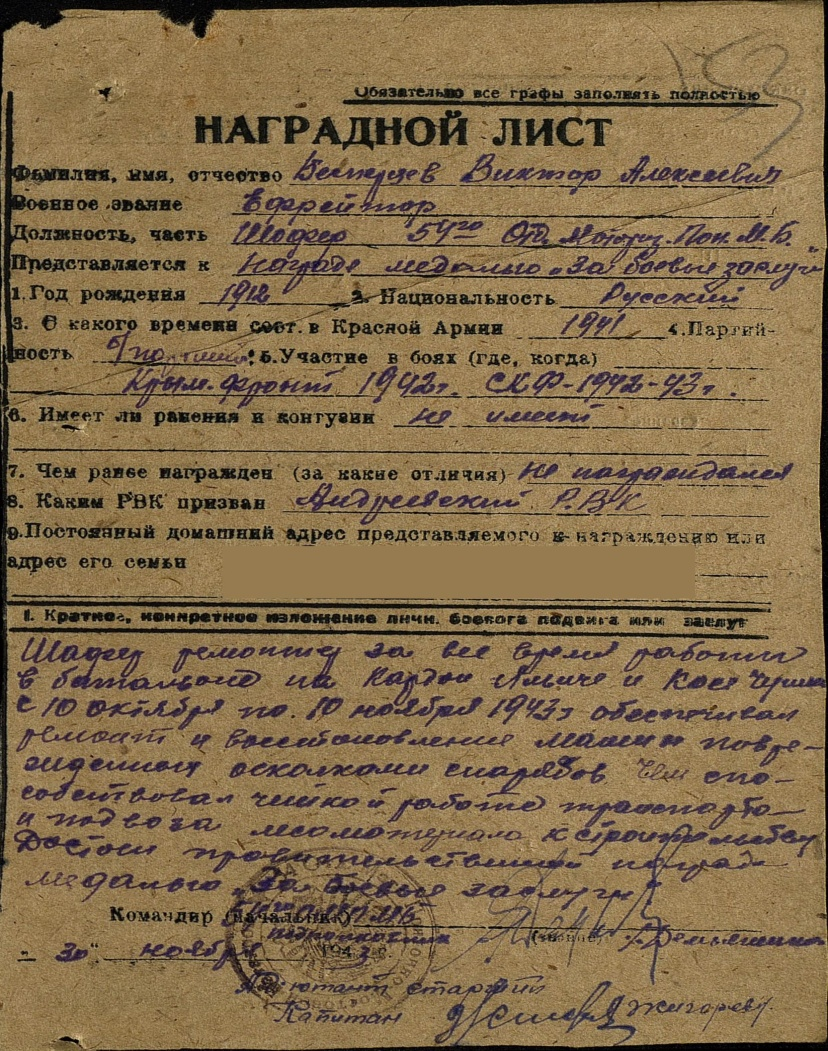 Обязательно все графы заполнять полностью
НАГРАДНОЙ ЛИСТ
Фамилия, имя, отчество Виктор Алексеевич
Военное звание Ефрейтор
Должность, часть Шофер 54го Отд. Моториз. Пон. М. Б.
Представляется к награде медалью „За боевые заслуги"
1. Год рождения 1912 2. Национальность Русский
3. С какого времени сост. в Красной Армии 1941 4. Партий-
ность 5. Участие в боях (где, когда)
Крым. фронт 1942г. СКФ-1942-43г.
6. Имеет ли ранения и контузии не имеет
7. Чем ранее награжден (за какие отличия) не награждался
8. Каким РВК призван Андреевский Р.В.К
9. Постоянный домашний адрес представляемого к награждению или
адрес его семьи
I. Краткое, конкретное изложение личн. боевого подвига или заслуг
Шофер за все время работы
в батальоне на Кордон и Косе
с 10 октября по 10 ноября 1943г обеспечивал
ремонт и восстановление машин повре-
жденных осколками снарядов Чем спо-
собствовал четкой работе транспорта
и подвоза лесоматериала к строительству
Достоин правительственной награды
медалью „За боевые заслуги"
Командир (начальник)
подполковник (звание)
„30" ноября 1943г.
Адъютант старший
Капитан Жигорев